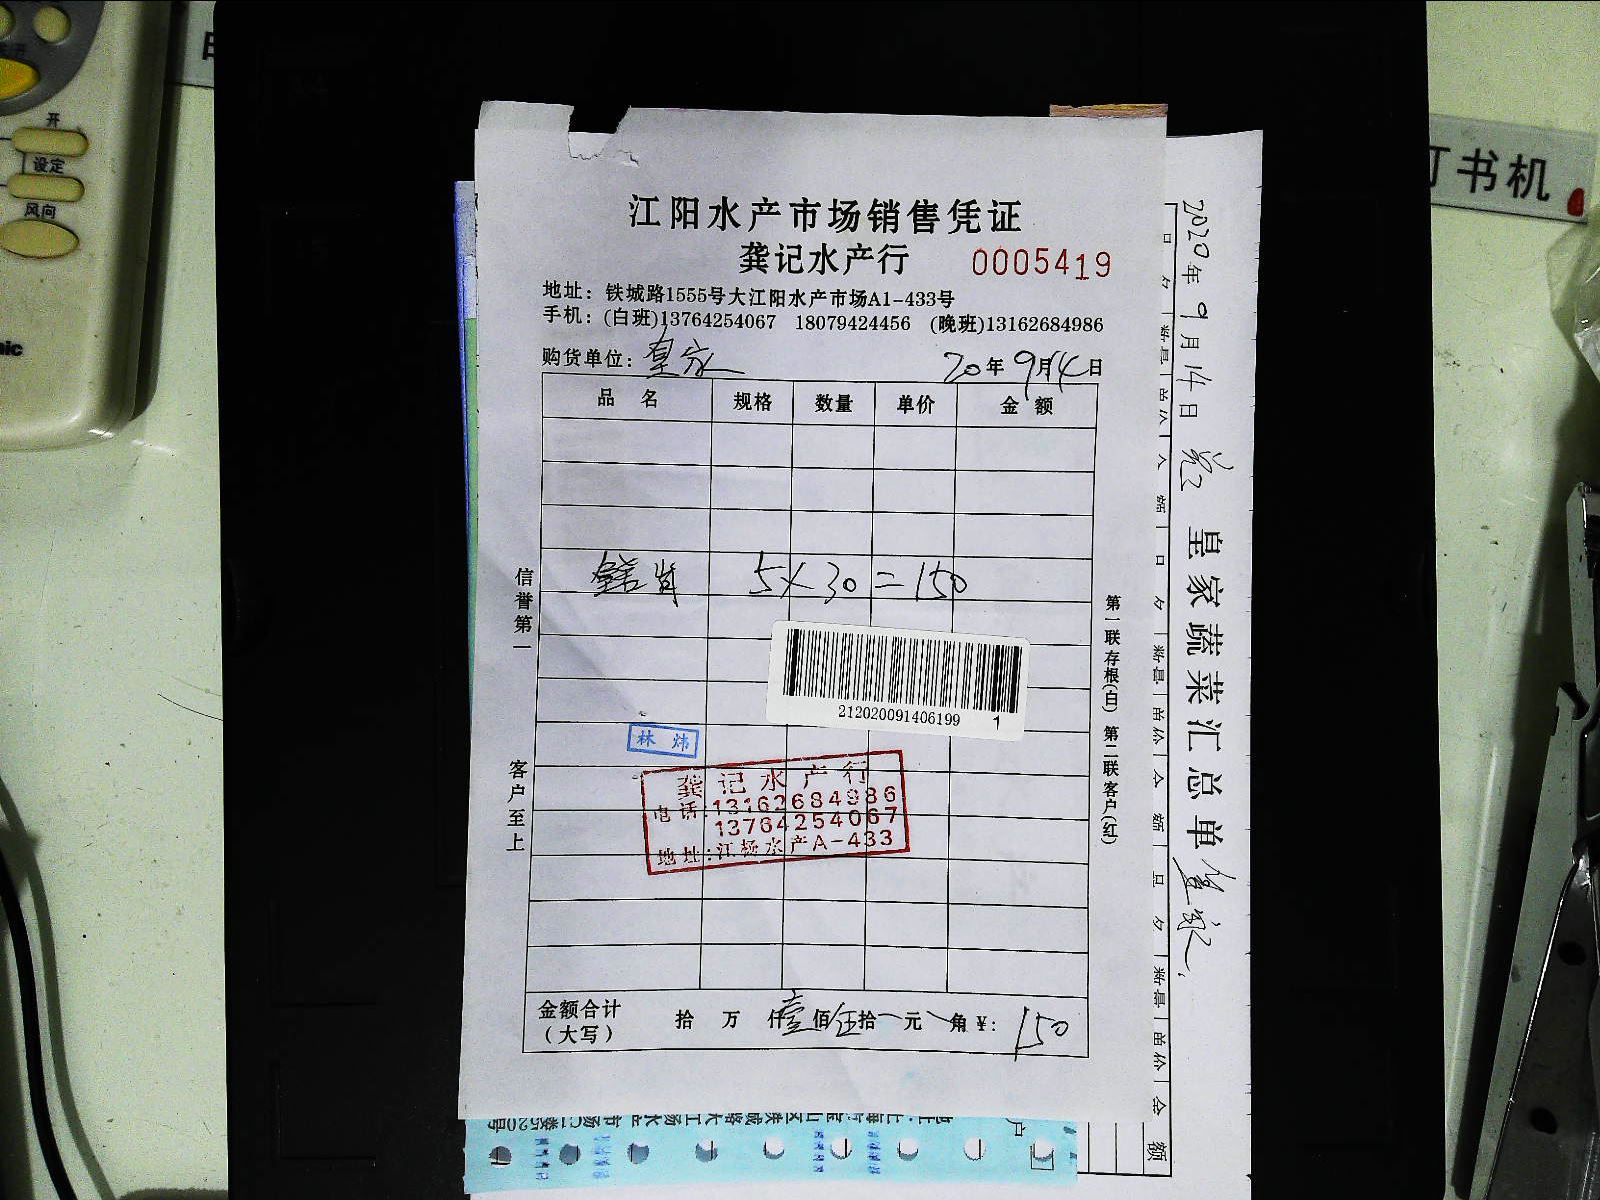 江阳水产市场销售凭证
龚记水产行 0005419
地址：铁城路1555号大江阳水产市场A1-433号
手机：(白班)13764254067 18079424456 (晚班)13162684986
购货单位：皇家 20年9月14日
品名 规格 数量 单价 金额
5×30=150
212020091406199 1
林炜
龚记水产行
电话:13162684986
13764254067
地址:江杨水产A-433
金额合计（大写） 拾 万 仟壹佰伍拾 元 角 ¥: 150
信誉第一 客户至上
第一联存根(白) 第二联客户(红)
2020年9月14日
皇家蔬菜汇总单
皇家
订书机
开
设定
风向